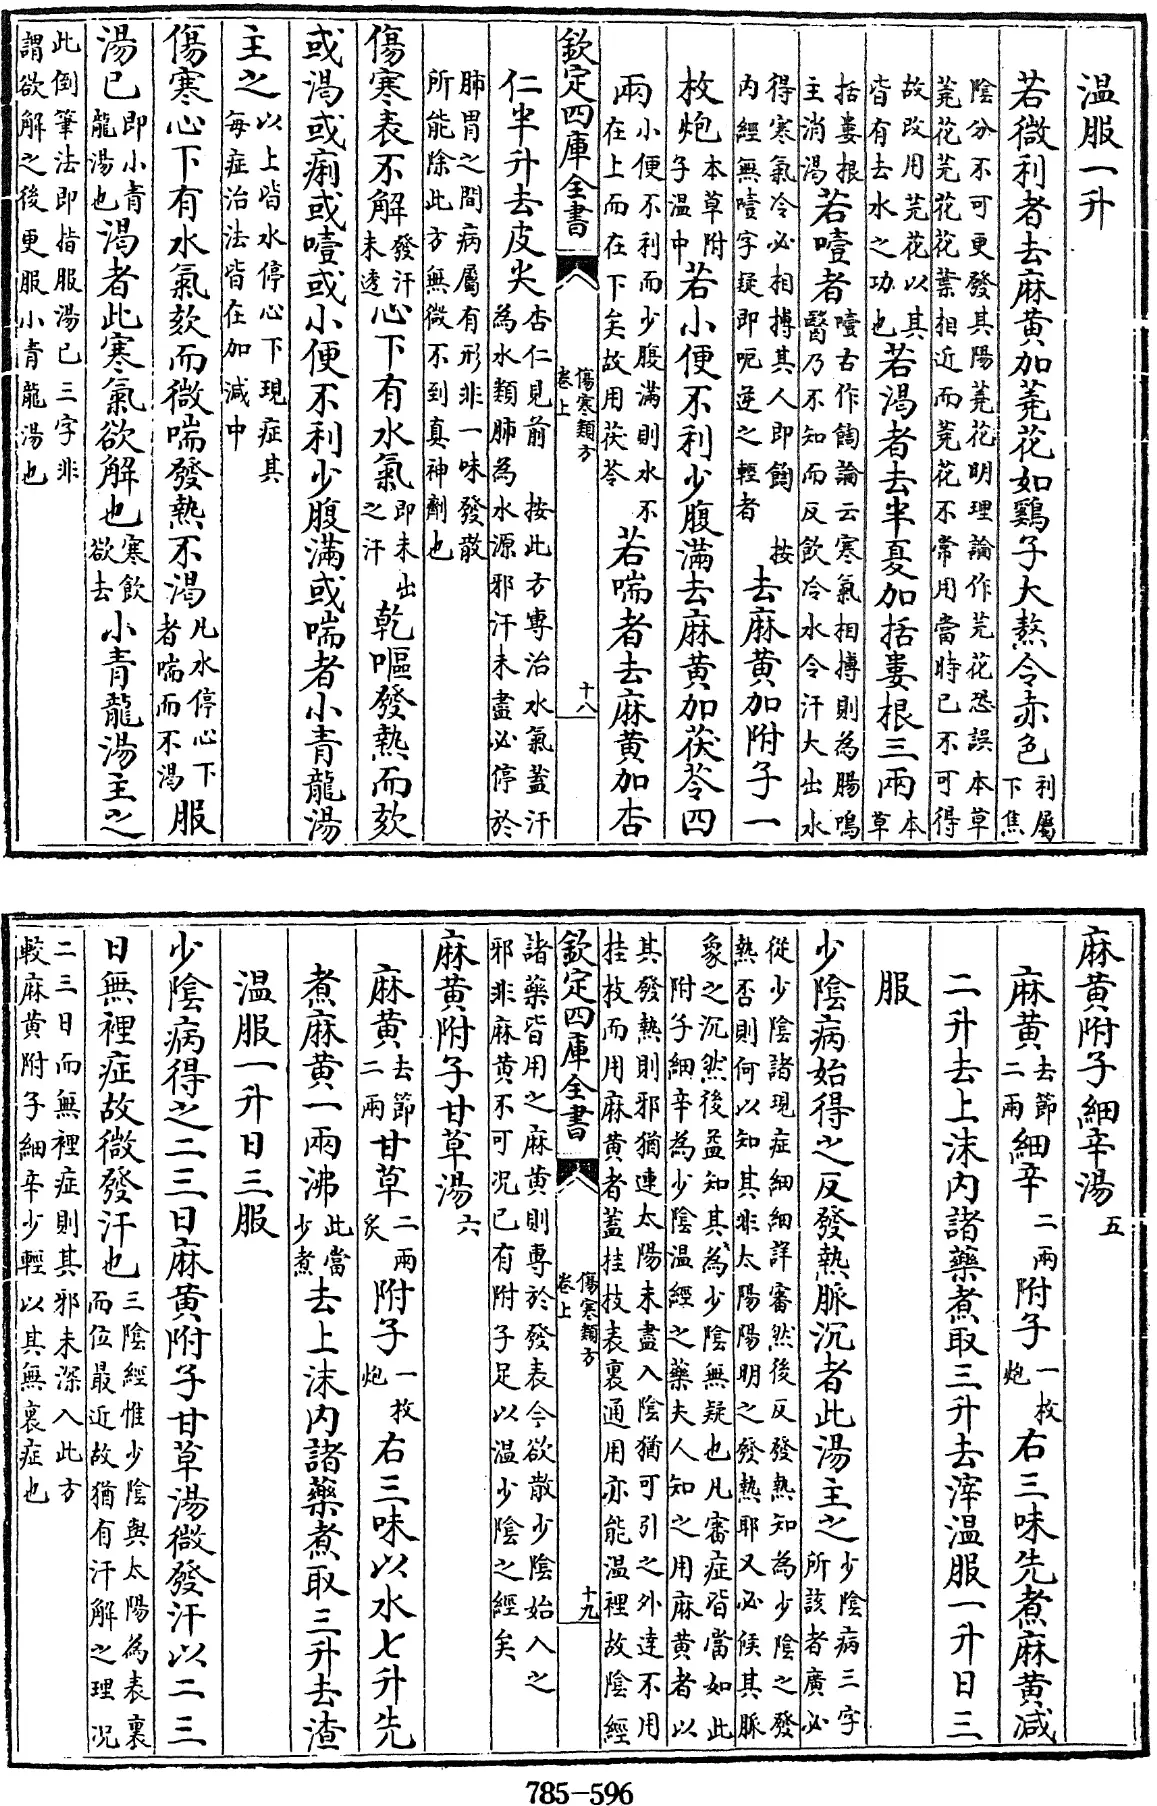 温服一升
若微利者去麻黄加蕘花如雞子大熬令赤色利屬下焦
陰分不可更發其陽蕘花明理論作芫花恐誤本草蕘花芫花花葉相近而蕘花不常用當時已不可得
故改用芫花以其皆有去水之功也若渴者去半夏加括蔞根三兩本草
括蔞根主消渴若噎者噎古作䭇論云寒氣相搏則為腸鳴醫乃不知而反飲冷水令汗大出水
得寒氣冷必相搏其人即䭇按内經無噎字疑即呃逆之輕者去麻黄加附子一
枚炮本草附子温中若小便不利少腹滿去麻黄加茯苓四
兩小便不利而少腹滿則水不在上而在下矣故用茯苓若喘者去麻黄加杏
欽定四庫全書
傷寒類方
卷上
十八
仁半升去皮尖杏仁見前按此方專治水氣蓋汗為水類肺為水源邪汗未盡必停於
肺胃之間病屬有形非一味發散所能除此方無微不到真神劑也
傷寒表不解發汗未透心下有水氣即未出之汗乾嘔發熱而欬
或渴或痢或噎或小便不利少腹滿或喘者小青龍湯
主之以上皆水停心下現症其每症治法皆在加減中
傷寒心下有水氣欬而微喘發熱不渴凡水停心下者喘而不渴服
湯已即小青龍湯也渴者此寒氣欲解也寒飲欲去小青龍湯主之
此倒筆法即指服湯已三字非謂欲解之後更服小青龍湯也
麻黄附子細辛湯五
麻黄去節二兩細辛二兩附子一枚炮右三味先煮麻黄減
二升去上沫内諸藥煮取三升去滓温服一升日三
服
少陰病始得之反發熱脈沉者此湯主之少陰病三字所該者廣必
從少陰諸現症細細詳審然後反發熱知為少陰之發熱否則何以知其非太陽陽明之發熱耶又必候其脈
象之沉然後益知其為少陰無疑也凡審症皆當如此附子細辛為少陰温經之藥夫人知之用麻黄者以
其發熱則邪猶連太陽未盡入陰猶可引之外達不用挂枝而用麻黄者蓋挂枝表裏通用亦能温裡故陰經
欽定四庫全書
傷寒類方
卷上
十九
諸藥皆用之麻黄則專於發表今欲散少陰始入之邪非麻黄不可况已有附子足以温少陰之經矣
麻黄附子甘草湯六
麻黄去節二兩甘草二兩炙附子一枚炮右三味以水七升先
煮麻黄一兩沸此當少煮去上沫内諸藥煮取三升去渣
温服一升日三服
少陰病得之二三日麻黄附子甘草湯微發汗以二三
日無裡症故微發汗也三陰經惟少陰與太陽為表裏而位最近故猶有汗解之理况
二三日而無裡症則其邪未深入此方較麻黄附子細辛少輕以其無裏症也
785-596